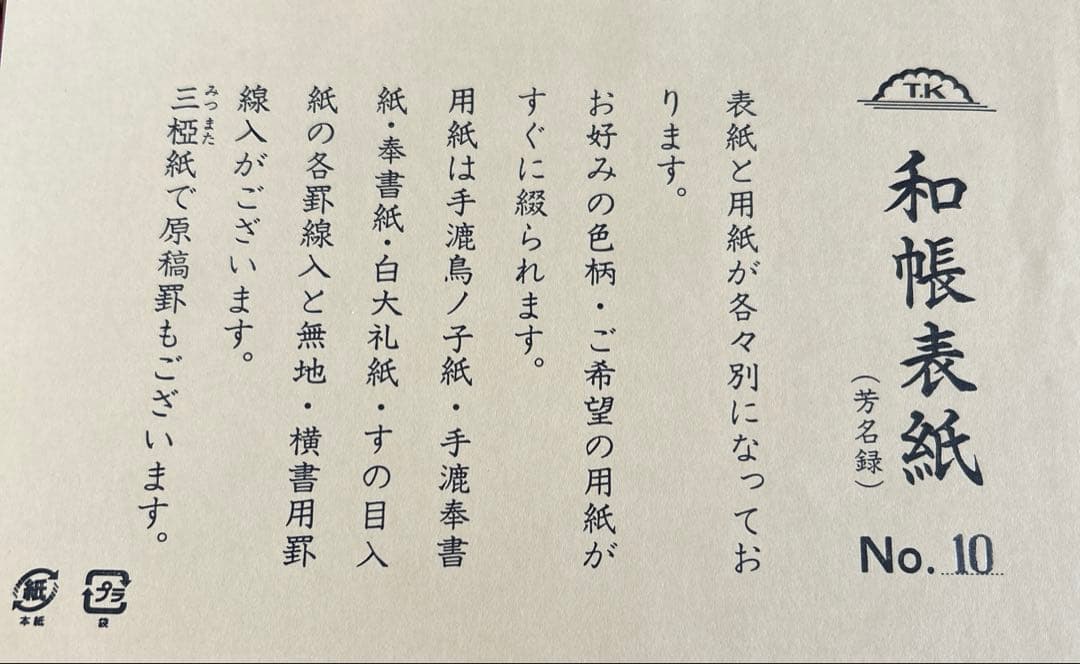 T.K
和帳表紙
(芳名録)
No. 10
表紙と用紙が各々別になってお
ります。
お好みの色柄・ご希望の用紙が
すぐに綴られます。
用紙は手漉鳥ノ子紙・手漉奉書
紙・奉書紙・白大礼紙・すの目入
紙の各罫線入と無地・横書用罫
線入がございます。
みつまた
三椏紙で原稿罫もございます。
紙
本紙
プラ
袋